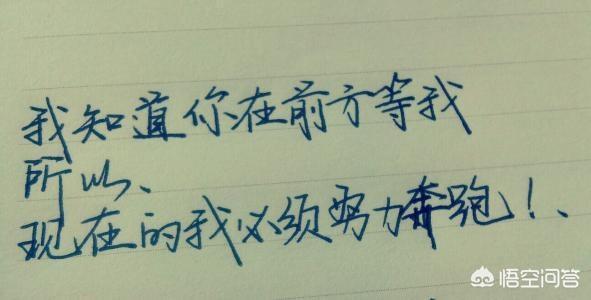 我知道你在前方等我
所以、
现在的我必须努力奔跑！、
悟空问答